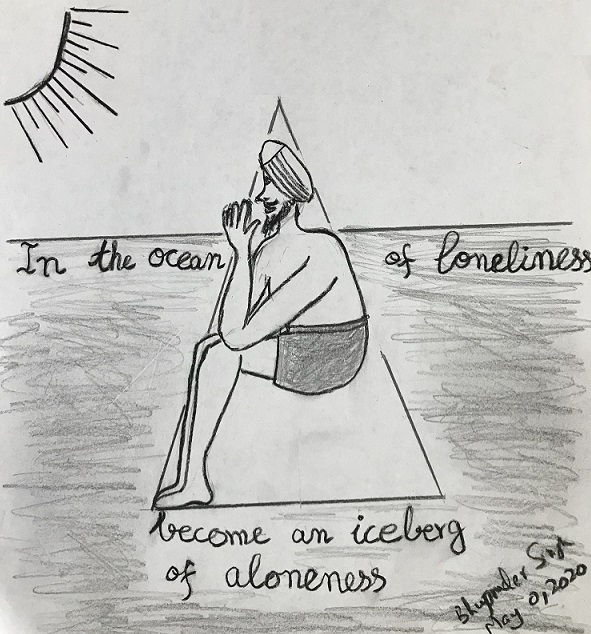 In the ocean of loneliness
become an iceberg
of aloneness
Bhupinder Singh
May 01, 2020